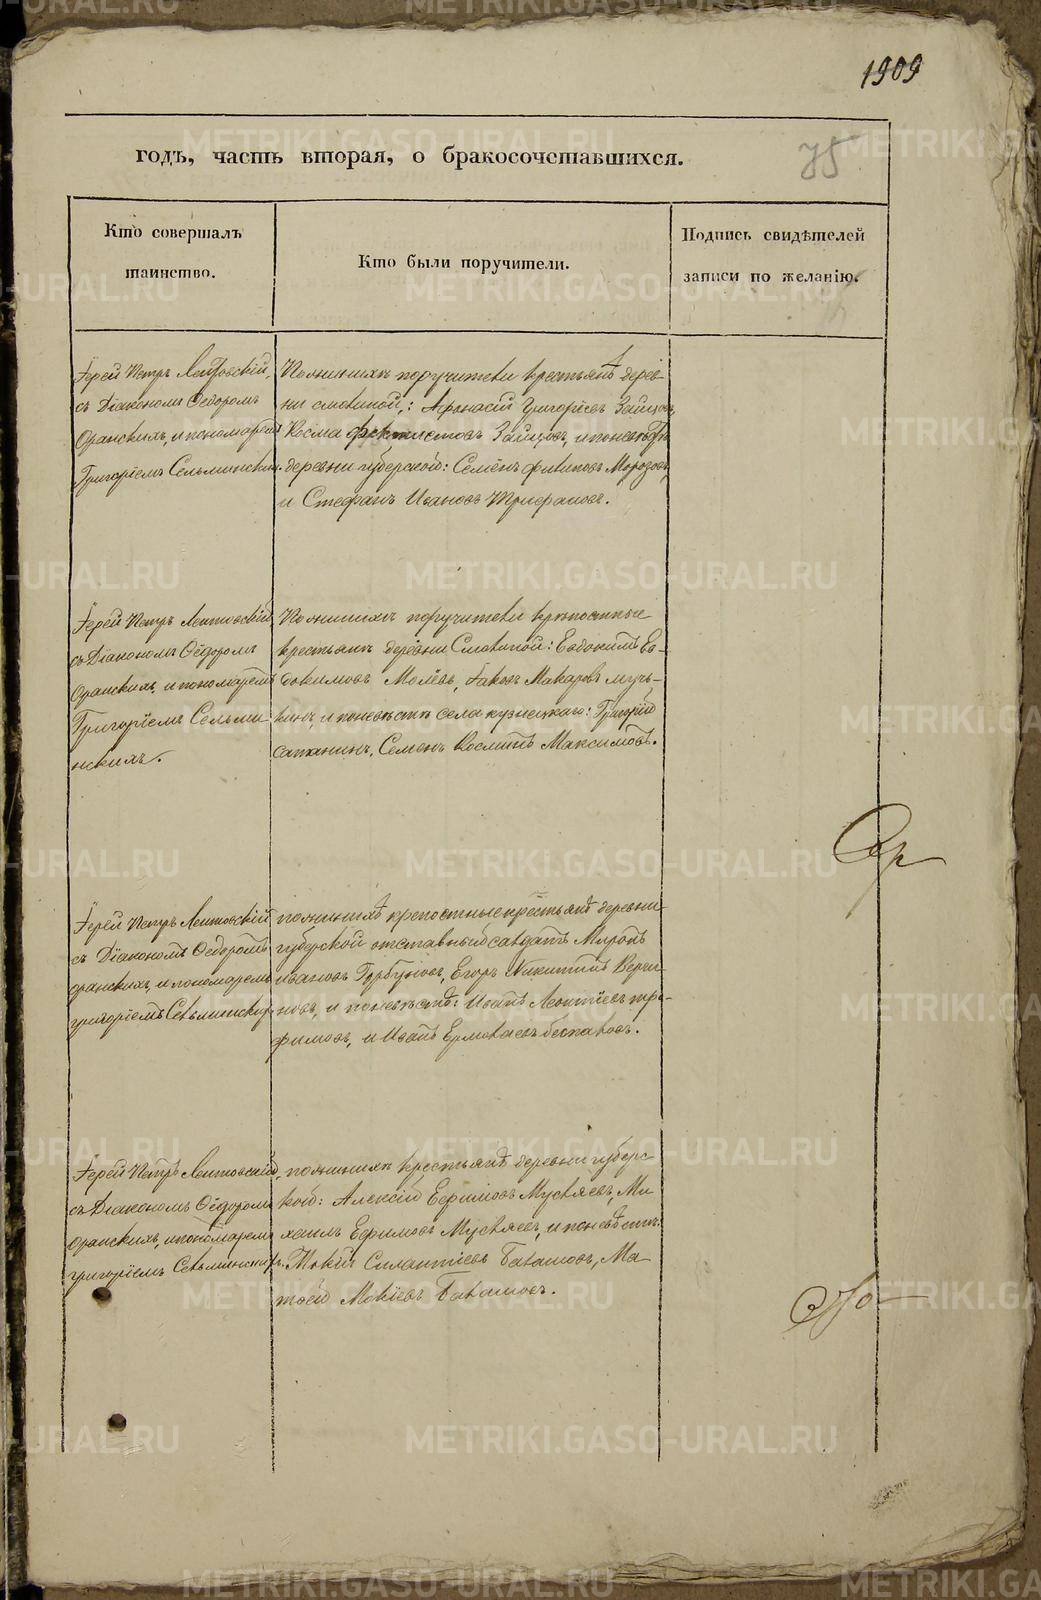 1909
годъ, часть вторая, о бракосочетавшихся.
75
Кто совершалъ
таинство.
Кто были поручители.
Подпись свидѣтелей
записи по желанію.
Іерей Петръ Лентовскій,
съ Діакономъ Ѳедоромъ
Оранскихъ, и пономаремъ
Григоріемъ Сельминскихъ.
По женихѣ поручители крестьянѣ дерев-
ни Смолиной: Афонасій Григоріевъ Зайцовъ,
Косма Фектистовъ Зайцовъ, и по невѣстѣ
деревни губерской: Семёнъ филиповъ Морозовъ,
и Стефанъ Ивановъ Трифановъ.
Іерей Петръ Лентовскій
съ Діакономъ Ѳёдоромъ
Оранскихъ, и пономаремъ
Григоріемъ Сельми-
нскихъ.
По женихѣ поручители крѣпостные
крестьянѣ деревни Смолиной: Евдокимъ Ев-
докимовъ Іаковъ Макаровъ
и по невѣстѣ села кузнецкаго: Григорій
Семенъ Косминъ Максимовъ.
Іерей Петръ Лентовскій
съ Діакономъ Ѳедоромъ
оранскихъ, и пономаремъ
григоріемъ Сельминскихъ.
по женихѣ крепостные крестьянѣ деревни
губерской отставный салдатъ Миронъ
ивановъ Горбуновъ, Егоръ Никитинъ
и по невѣстѣ: Иванъ Леонтіевъ тро-
фимовъ, и Иванъ Ермолаевъ
Іерей Петръ Лентовскій,
съ Діакономъ Ѳёдоромъ
Оранскихъ, и пономаремъ
григоріемъ Сельминскихъ.
по женихѣ крестьянѣ деревни губерс-
кой: Алексій Ефимовъ Мусляевъ, Ми-
хаилъ Ефимовъ Мусляевъ, и по невѣстѣ:
Мокій Силантіевъ Балашовъ, Ма-
тѳей Мокіевъ Балашовъ.
METRIKI.GASO-URAL.RU